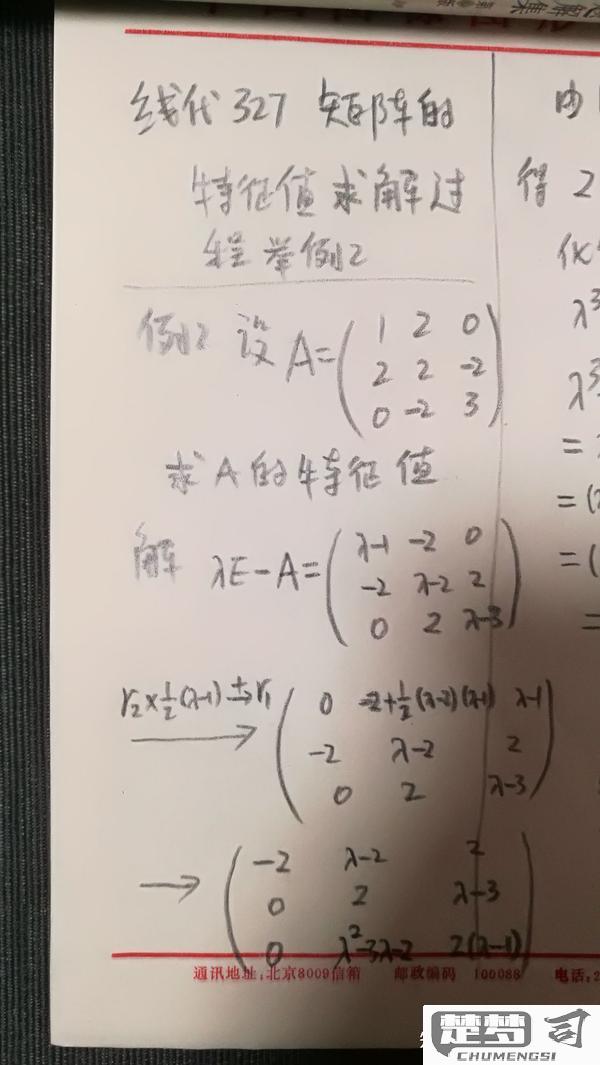 线代327 矩阵的
特征值求解过
程举例2
例2 设 A=(1 2 0
2 2 -2
0 -2 3)
求A的特征值
解 λE-A=(λ-1 -2 0
-2 λ-2 2
0 2 λ-3)
r₂×½(λ-1)+→r₁
→ (0 -2+½(λ-2)(λ-1) λ-1
-2 λ-2 2
0 2 λ-3)
→ (-2 λ-2 2
0 2 λ-3
0 λ²-3λ-2 2(λ-1))
由
得 2
化
λ³
λ³
=
=(
=(
=
通讯地址:北京8009信箱 邮政编码 100088 电话:2
楚梦司
CHUMENGSI